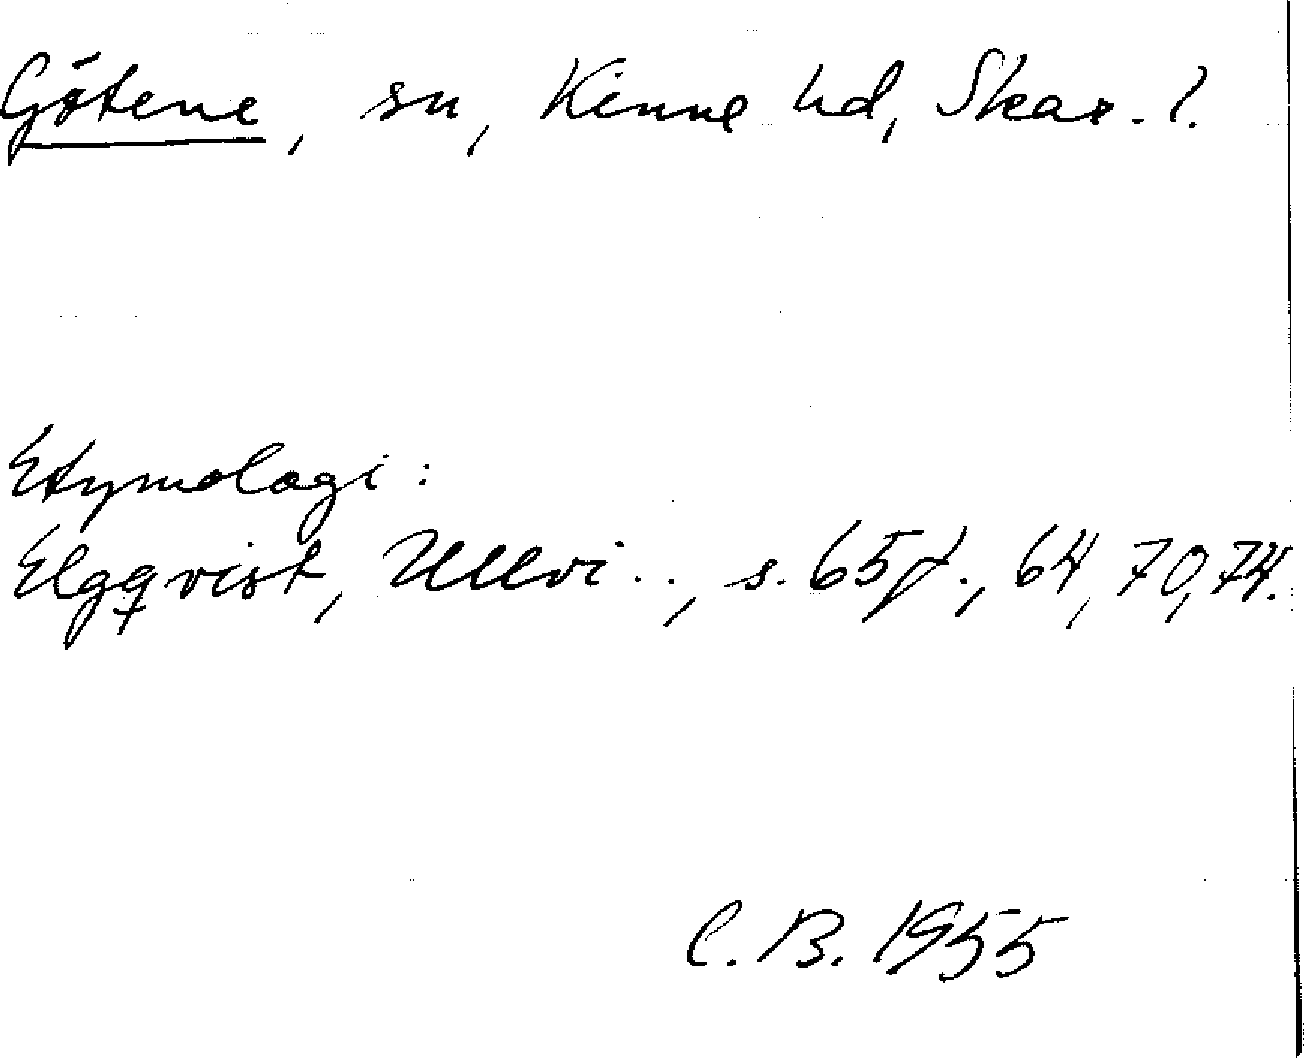 Götene, sn, Kinne hd, Skar. l.
Etymologi:
Elgqvist, Ullvi.., s. 65f., 64, 70, 74.
C. B. 1955